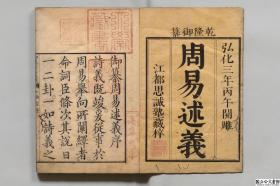 乾隆御纂
弘化三年丙午開雕
周易述義
江都思誠塾藏梓
御纂周易述義序
詩義既竣爰從事於
周易舉向所闡繹者
命詞臣條次其說日
一二卦一如詩義之